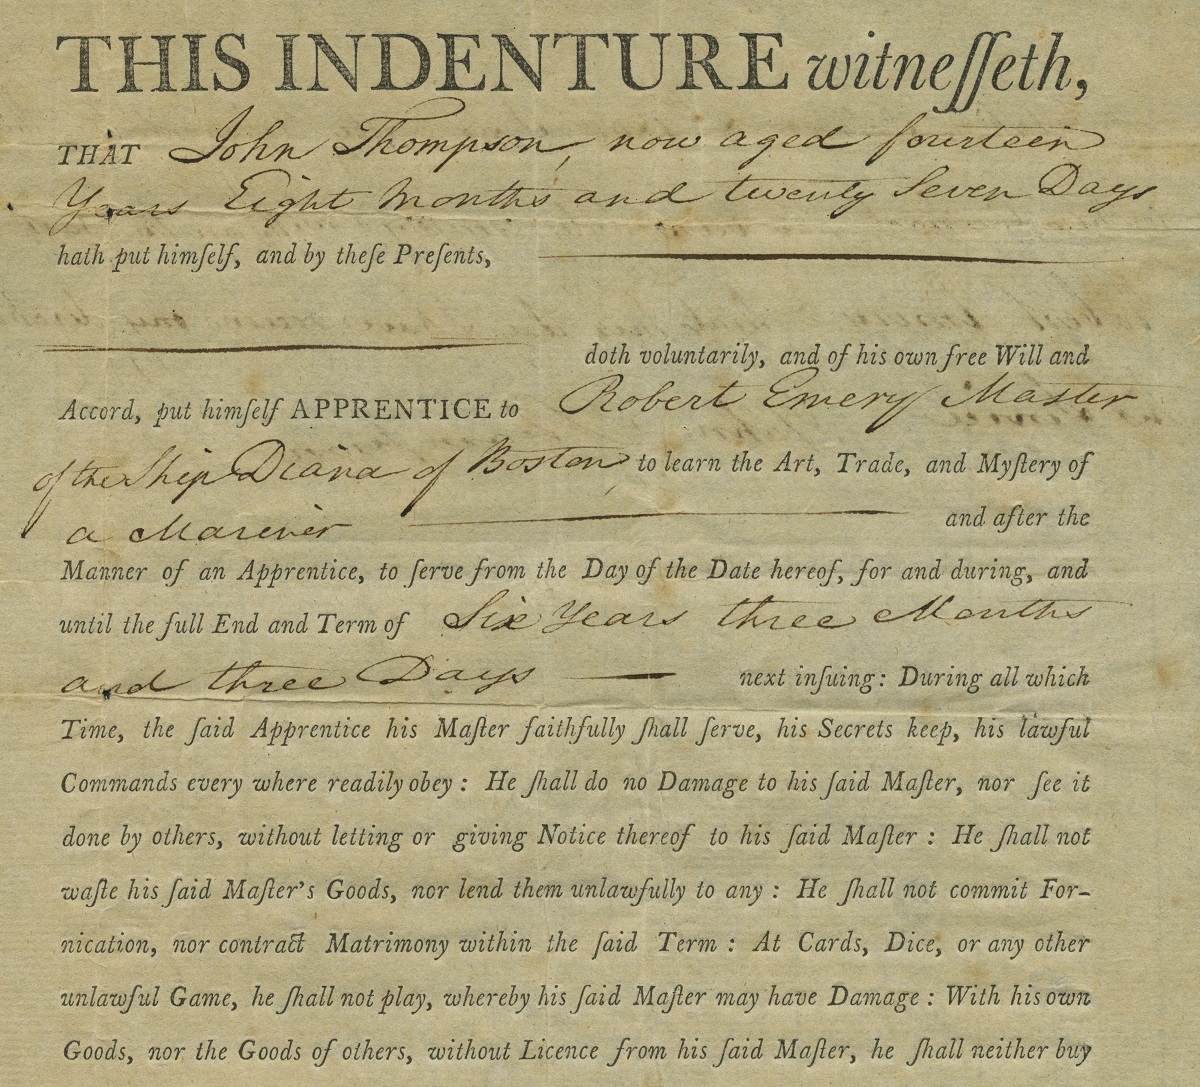 THIS INDENTURE witneſſeth,
THAT John Thompson, now aged fourteen
Years Eight Months and twenty Seven Days
hath put himſelf, and by theſe Preſents,
doth voluntarily, and of his own free Will and
Accord, put himſelf APPRENTICE to Robert Emery Master
of the Ship Diana of Boston to learn the Art, Trade, and Myſtery of
a Mariner and after the
Manner of an Apprentice, to ſerve from the Day of the Date hereof, for and during, and
until the full End and Term of Six Years three Months
and three Days next inſuing: During all which
Time, the ſaid Apprentice his Maſter faithfully ſhall ſerve, his Secrets keep, his lawful
Commands every where readily obey: He ſhall do no Damage to his ſaid Maſter, nor ſee it
done by others, without letting or giving Notice thereof to his ſaid Maſter: He ſhall not
waſte his ſaid Maſter's Goods, nor lend them unlawfully to any: He ſhall not commit For-
nication, nor contract Matrimony within the ſaid Term: At Cards, Dice, or any other
unlawful Game, he ſhall not play, whereby his ſaid Maſter may have Damage: With his own
Goods, nor the Goods of others, without Licence from his ſaid Maſter, he ſhall neither buy